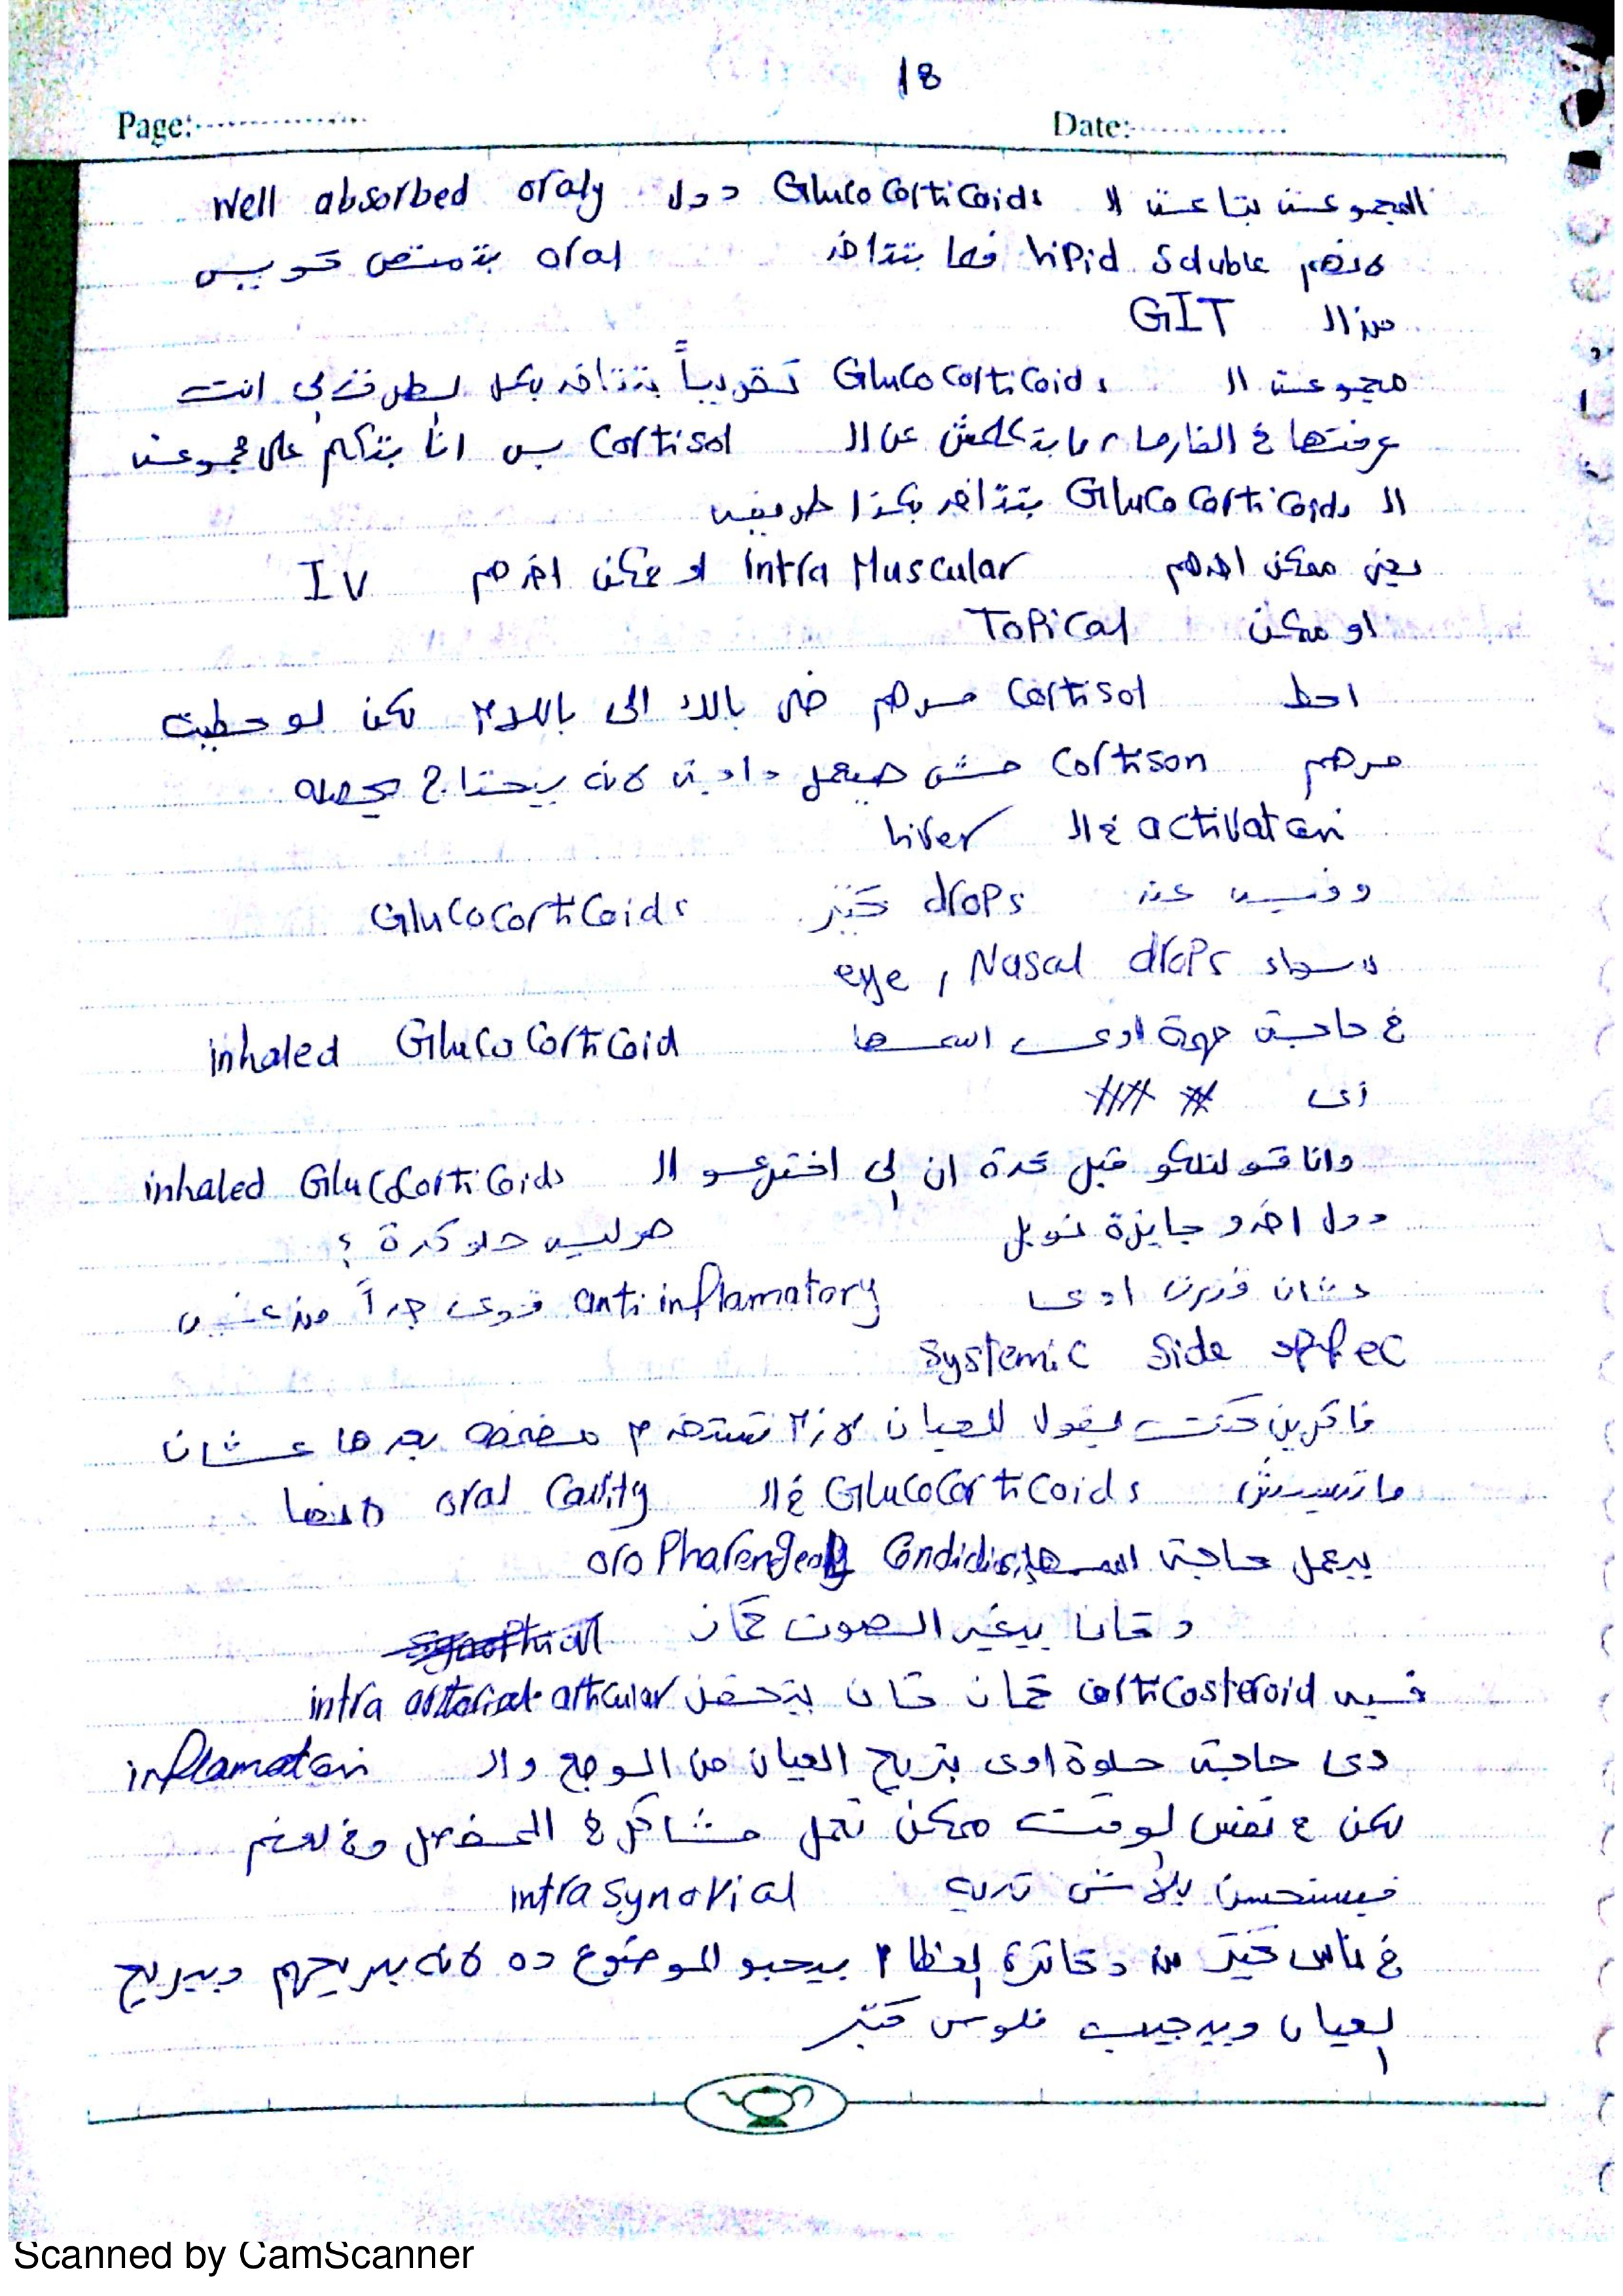 18
Page:............... Date:..............
المجموعة بتاعت الـ Glucocorticoids دول well absorbed oraly
لانهم lipid soluble فلما بتتاخد oral بتمتص كويس
من الـ GIT
مجموعة الـ Glucocorticoids تقريباً بتتاخد بكل لطرق إلي انت
عرفتها في الفارما، مابتكلمش عن الـ Cortisol بس انا بتكلم على مجموعة
الـ Glucocorticoids بتتاخد بكذا طريقة
يعني ممكن اخدهم intra Muscular او ممكن اخدهم IV
او ممكن Topical
احط Cortisol مرهم خلي بالك الي باللام لكن لو حطيت
مرهم Cortison مش هيعمل حاجة لانه بيحتاج يحصله
activation في الـ liver
وفيه عند drops كتير Glucocorticoids
سواء eye, Nasal drops
في حاجة مهمة اوي اسمها inhaled Glucocorticoid
وانا قولتلكو قبل كدة ان إلي اخترعو الـ inhaled Glucocorticoids
دول اخدو جايزة نوبل هو ليه حلو كدة ؟
عشان اوي anti inflamatory قوي جداً من غير
systemic side effec
فاكرين كنت بيقول للعيان لازم تستخدم مضمضة بعدها عشان
ماتسيبش Glucocorticoids في الـ oral cavity لانها
بيعمل حاجة اسمها oropharengeal Candidis
وكانا بيغير الصوت كمان
فيه corticosteroid كمان كان بيتحقن intra articular
دي حاجة حلوة اوي بتريح العيان من الوجع والـ inflamation
لكن في نفس لوقت ممكن تعمل مشاكل في المفصل وفي لعضم
فيستحسن بلاش تديه intrasynovial
في ناس كتير من دكاترة إلعظام بيحبو الموضوع ده لانه بيريحهم وبيريح
إلعيان وبيجيب فلوس كتير
Scanned by CamScanner